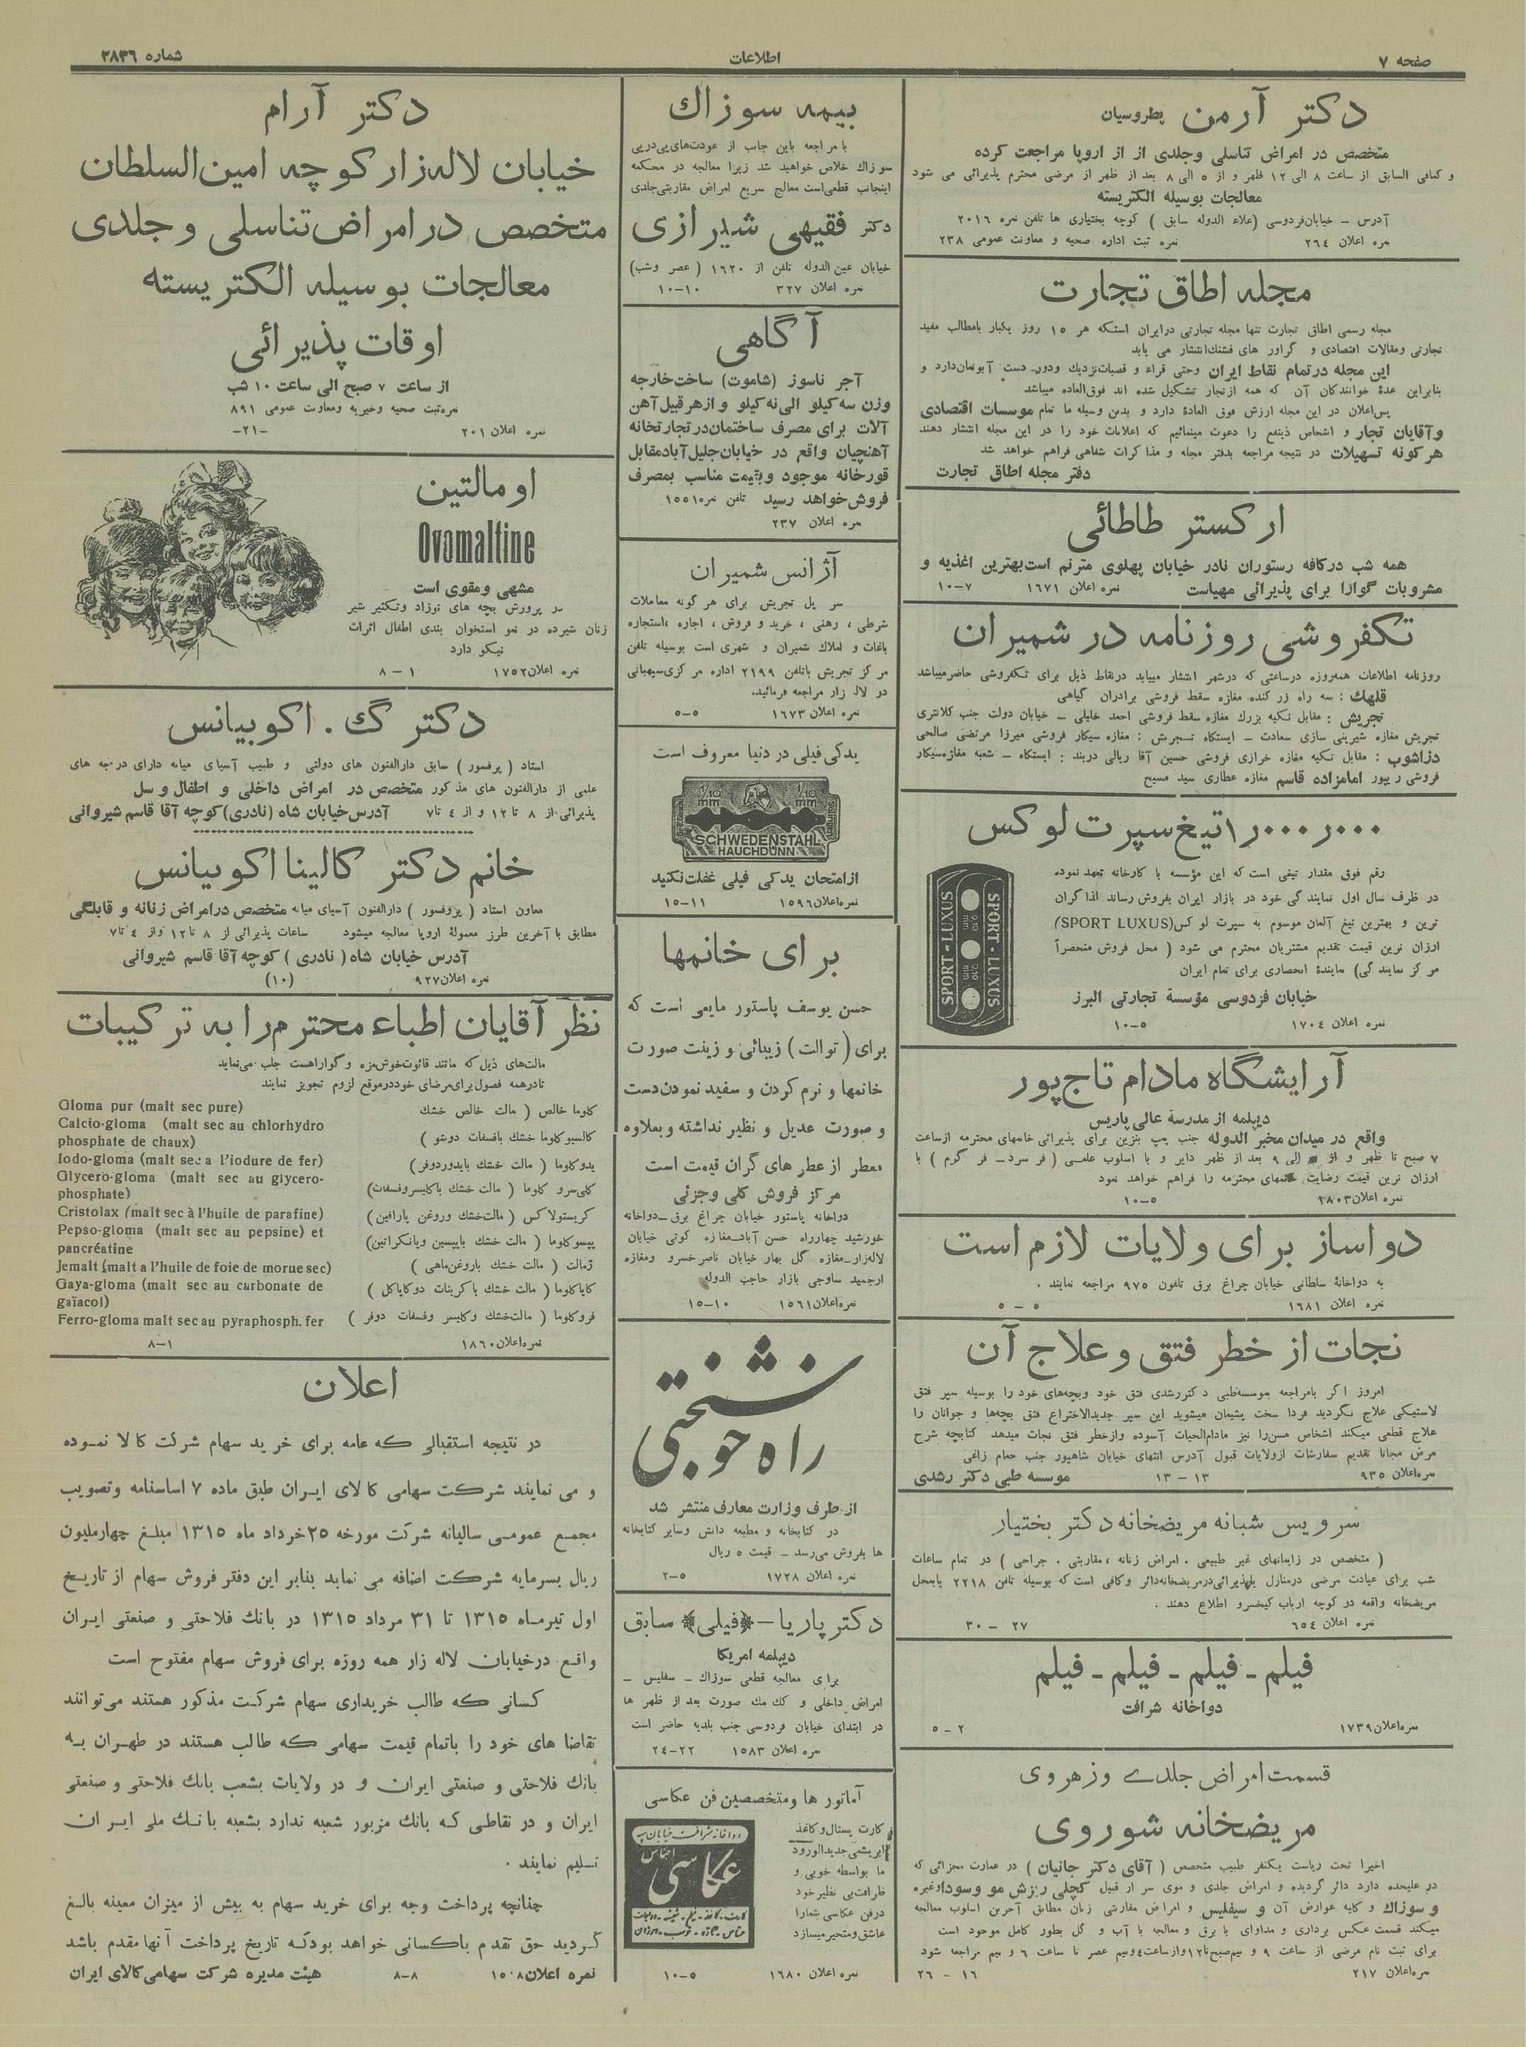 صفحه ۷
اطلاعات
شماره ۳۸۳۶
دکتر آرمن پطروسیان
متخصص در امراض تناسلی وجلدی از از اروپا مراجعت کرده
و کمافی السابق از ساعت ۸ الی ۱۲ ظهر و از ۵ الی ۸ بعد از ظهر از مرضی محترم پذیرائی می شود
معالجات بوسیله الکتریسته
آدرس - خیابان فردوسی (علاء الدوله سابق) کوچه بختیاری ها تلفن نمره ۲۰۱۶
نمره اعلان ۲۶۴ نمره ثبت اداره صحیه و معاونت عمومی ۲۳۸
مجله اطاق تجارت
مجله رسمی اطاق تجارت تنها مجله تجارتی در ایران استکه هر ۱۵ روز یکبار بامطالب مفید
تجارتی ومقالات اقتصادی و گراور های قشنك انتشار می یابد
این مجله درتمام نقاط ایران وحتی قراء و قصبات نزدیك ودور دست آبونمان دارد و
بنابراین عدهٔ خوانندگان آن که همه ازتجار تشکیل شده اند فوق العاده میباشد
پس اعلان در این مجله ارزش فوق العادهٔ دارد و بدین وسیله ما تمام موسسات اقتصادی
و آقایان تجار و اشخاص ذینفع را دعوت مینمائیم که اعلانات خود را در این مجله انتشار دهند
هرگونه تسهیلات در نتیجه مراجعه بدفتر مجله و مذاکرات شفاهی فراهم خواهد شد
دفتر مجله اطاق تجارت
ارکستر طاطائی
همه شب درکافه رستوران نادر خیابان پهلوی مترنم است بهترین اغذیه و
مشروبات گوارا برای پذیرائی مهیاست نمره اعلان ۱۶۷۱ ۷-۱۰
تکفروشی روزنامه در شمیران
روزنامه اطلاعات همه روزه درساعتی که درشهر انتشار مییابد درنقاط ذیل برای تکفروشی حاضر میباشد
قلهك : سه راه زرکنده مغازه سقط فروشی برادران گیاهی
تجریش : مقابل تکیه بزرك مغازه سقط فروشی احمد خلیلی - خیابان دولت جنب کلانتری
تجریش مغازه شیرینی سازی سعادت - ایستگاه تجریش : مغازه سیگار فروشی میرزا مرتضی صالحی
دزاشوب : مقابل تکیه مغازه خرازی فروشی حسین آقا ریالی دربند : ایستگاه - شعبه مغازه سیگار
فروشی ریپور امامزاده قاسم مغازه عطاری سید مسیح
۱٫۰۰۰٫۰۰۰ تیغ سپرت لوکس
رقم فوق مقدار تیغی است که این مؤسسه با کارخانه تعهد نموده
در ظرف سال اول نمایندگی خود در بازار ایران بفروش رساند لذا گران
ترین و بهترین تیغ آلمان موسوم به سپرت لوکس (SPORT LUXUS)
ارزان ترین قیمت تقدیم مشتریان محترم می شود ( محل فروش منحصراً
مرکز نمایندگی) نمایندهٔ انحصاری برای تمام ایران
خیابان فردوسی مؤسسهٔ تجارتی البرز
نمره اعلان ۱۷۰۴ ۵-۱۰
SPORT-LUXUS
SPORT-LUXUS
آرایشگاه مادام تاج پور
دیپلمه از مدرسهٔ عالی پاریس
واقع در میدان مخبر الدوله جنب پمپ بنزین برای پذیرائی خانمهای محترمه ازساعت
۷ صبح تا ظهر و از الی ۹ بعد از ظهر دایر و با اسلوب علمی ( فر سرد - فر گرم ) با
ارزان ترین قیمت رضایت خانمهای محترمه را فراهم خواهد نمود
نمره اعلان ۲۸۰۳ ۵-۱۰
دواساز برای ولایات لازم است
به دواخانهٔ سلطانی خیابان چراغ برق تلفون ۹۷۵ مراجعه نمایند .
نمره اعلان ۱۶۸۱ ۵ - ۵
نجات از خطر فتق و علاج آن
امروز اگر بامراجعه بموسسه طبی دکتر رشدی فتق خود وبچه های خود را بوسیله سپر فتق
لاستیکی علاج نگردید فردا سخت پشیمان میشوید این سپر جدیدالاختراع فتق بچه ها و جوانان را
علاج قطعی میکند اشخاص مسن را نیز مادام الحیات آسوده وازخطر فتق نجات میدهد کتابچه شرح
مرض مجانا تقدیم سفارشات از ولایات قبول آدرس انتهای خیابان شاهپور جنب حمام زاغی
نمره اعلان ۹۳۵ ۱۳ - ۱۳ موسسه طبی دکتر رشدی
سرویس شبانه مریضخانه دکتر بختیار
( متخصص در زایمانهای غیر طبیعی . امراض زنانه ، مقاربتی . جراحی ) در تمام ساعات
شب برای عیادت مرضی درمنازل یا پذیرائی درمریضخانه دائر وکافی است که بوسیله تلفن ۲۲۱۸ یا بمحل
مریضخانه واقعه در کوچه ارباب کیخسرو اطلاع دهند .
نمره اعلان ۶۵۴ ۲۷ - ۳۰
فیلم - فیلم - فیلم - فیلم
دواخانه شرافت
نمره اعلان ۱۷۳۹ ۲ - ۵
قسمت امراض جلدی وزهروی
مریضخانه شوروی
اخیرا تحت ریاست یکنفر طبیب متحصص ( آقای دکتر جانیان ) در عمارت مجزائی که
در علیحده دارد دائر گردیده و امراض جلدی و موی سر از قبیل کچلی ریزش مو وسودا وغیره
و سوزاك و کلیه عوارض آن و سیفلیس و امراض مقاربتی زنان مطابق آخرین اسلوب معالجه
میکند قسمت عکس برداری و مداوای با برق و معالجه با آب و گل بطور کامل موجود است
برای ثبت نام مرضی از ساعت ۹ و نیم صبح تا ۱۲ وازساعت ٤ ونیم عصر تا ساعت ۶ و نیم مراجعه شود
نمره اعلان ۲۱۷ ۱۶ - ۲۶
بیمه سوزاك
با مراجعه باین جانب از عودت های پی در پی
سوزاك خلاص خواهید شد زیرا معالجه در محکمه
اینجانب قطعی است معالج سریع امراض مقاربتی جلدی
دکتر فقیهی شیرازی
خیابان عین الدوله تلفن از ۱۶۲۰ ( عصر وشب)
نمره اعلان ۳۲۷ ۱۰-۱۰
آگاهی
آجر ناسوز (شاموت) ساخت خارجه
وزن سه کیلو الی نه کیلو و ازهر قبیل آهن
آلات برای مصرف ساختمان در تجارتخانه
آهنچیان واقع در خیابان جلیل آباد مقابل
قورخانه موجود و بقیمت مناسب بمصرف
فروش خواهد رسید تلفن نمره ۱۵۵۱
نمره اعلان ۲۳۷
آژانس شمیران
سر پل تجریش برای هر گونه معاملات
شرطی ، رهنی ، خرید و فروش ، اجاره ، استجاره
باغات و املاك شمیران و شهری است بوسیله تلفن
مرکز تجریش باتلفن ۲۱۹۹ اداره مرکزی سپهبانی
در لاله زار مراجعه فرمائید.
نمره اعلان ۱۶۷۳ ۵-۵
یدکی فیلی در دنیا معروف است
1/10 mm 1/10 mm
SCHWEDENSTAHL
HAUCHDÜNN
ازامتحان یدکی فیلی غفلت نکنید
نمره اعلان ۱۵۹۶ ۱۱-۱۵
برای خانمها
حسن یوسف پاستور مایعی است که
برای ( توالت ) زیبائی و زینت صورت
خانمها و نرم کردن و سفید نمودن دست
و صورت عدیل و نظیر نداشته و بعلاوه
معطر از عطر های گران قیمت است
مرکز فروش کلی وجزئی
دواخانه پاستور خیابان چراغ برق - دواخانه
خورشید چهارراه حسن آباد - مغازه کوتی خیابان
لاله زار - مغازه گل بهار خیابان ناصر خسرو ومغازه
ارجمید ساوجی بازار حاجب الدوله
نمره اعلان ۱۵۶۱ ۱۰-۱۵
راه خوشبختی
از طرف وزارت معارف منتشر شد
در کتابخانه و مطبعه دانش وسایر کتابخانه
ها بفروش می رسد - قیمت ۵ ریال
نمره اعلان ۱۷۲۸ ۵-۲
دکتر پاریا - «فیلی» سابق
دیپلمه امریکا
برای معالجه قطعی سوزاك - سفلیس -
امراض داخلی و كك مك صورت بعد از ظهر ها
در ابتدای خیابان فردوسی جنب بلدیه حاضر است
نمره اعلان ۱۵۸۳ ۲۲-۲۴
آماتور ها ومتخصصین فن عکاسی
کارت پستال و کاغذ
ابریشمی جدیدالورود
ما بواسطه خوبی و
ظرافت بی نظیر خود
درفن عکاسی شمارا
عاشق ومتحیر میسازد
دواخانه شرافت خیابان
اجناس
عکاسی
نمره اعلان ۱۶۸۰ ۵-۱۰
دکتر آرام
خیابان لاله زار کوچه امین السلطان
متخصص در امراض تناسلی و جلدی
معالجات بوسیله الکتریسته
اوقات پذیرائی
از ساعت ۷ صبح الی ساعت ۱۰ شب
نمره ثبت صحیه وخیریه ومعاونت عمومی ۸۹۱
نمره اعلان ۲۰۱ -۲۱-
اومالتین
Ovomaltine
مشهی ومقوی است
در پرورش بچه های نوزاد وتکثیر شیر
زنان شیرده در نمو استخوان بندی اطفال اثرات
نیکو دارد
نمره اعلان ۱۷۵۲ ۱ - ۸
دکتر گ . اکوبیانس
استاد ( پرفسور ) سابق دارالفنون های دولتی و طبیب آسیای میانه دارای درجه های
علمی از دارالفنون های مذکور متخصص در امراض داخلی و اطفال و سل
پذیرائی از ۸ تا ۱۲ و از ٤ تا ۷ آدرس خیابان شاه (نادری) کوچه آقا قاسم شیروانی
خانم دکتر کالینا اکوبیانس
معاون استاد ( پرفسور ) دارالفنون آسیای میانه متخصص درامراض زنانه و قابلگی
مطابق با آخرین طرز معمولهٔ اروپا معالجه میشود ساعات پذیرائی از ۸ تا ۱۲ و از ٤ تا ۷
آدرس خیابان شاه ( نادری ) کوچه آقا قاسم شیروانی
نمره اعلان ۹۲۷ (۱۰)
نظر آقایان اطباء محترم را به ترکیبات
مالت های ذیل که مانند قانوت خوش مزه و گوار است جلب می نماید
تادرهمه فصول برای مرضای خود درموقع لزوم تجویز نمایند
Gloma pur (malt sec pure) کلوما خالص ( مالت خالص خشك
Calcio-gloma (malt sec au chlorhydro
phosphate de chaux) کالسیو کلوما خشك بافسفات دوشو )
Iodo-gloma (malt sec a l'iodure de fer) یدو کلوما ( مالت خشك بایدور دوفر )
Glycero-gloma (malt sec au glycero-
phosphate) کلی سرو کلوما ( مالت خشك باکلیسرو فسفات)
Cristolax (malt sec à l'huile de parafine) کریستولاکس ( مالت خشك وروغن پارافین )
Pepso-gloma (malt sec au pepsine) et
pancréatine پپسو کلوما ( مالت خشك باپپسین وپانکراتین)
Jemalt (malt a l'huile de foie de morue sec) ژمالت ( مالت خشك باروغن ماهی )
Gaya-gloma (malt sec au carbonate de
gaïacol) کایا کلوما ( مالت خشك با کربنات دو کایاکل )
Ferro-gloma malt sec au pyraphosph. fer فرو کلوما ( مالت خشك وکلیسر وفسفات دوفر )
نمره اعلان ۱۸۶۰ ۱-۸
اعلان
در نتیجه استقبالی که عامه برای خرید سهام شرکت کالا نموده
و می نمایند شرکت سهامی کالای ایران طبق ماده ۷ اساسنامه وتصویب
مجمع عمومی سالیانه شرکت مورخه ۲۵ خرداد ماه ۱۳۱۵ مبلغ چهارملیون
ریال بسرمایه شرکت اضافه می نماید بنابر این دفتر فروش سهام از تاریخ
اول تیرماه ۱۳۱۵ تا ۳۱ مرداد ۱۳۱۵ در بانك فلاحتی و صنعتی ایران
واقع درخیابان لاله زار همه روزه برای فروش سهام مفتوح است
کسانی که طالب خریداری سهام شرکت مذکور هستند می توانند
تقاضا های خود را باتمام قیمت سهامی که طالب هستند در طهران به
بانك فلاحتی و صنعتی ایران و در ولایات بشعب بانك فلاحتی و صنعتی
ایران و در نقاطی که بانك مزبور شعبه ندارد بشعبه بانك ملی ایران
تسلیم نمایند .
چنانچه پرداخت وجه برای خرید سهام به بیش از میزان معینه بالغ
گردید حق تقدم باکسانی خواهد بود که تاریخ پرداخت آنها مقدم باشد
نمره اعلان ۱۵۰۸ ۸-۸ هیئت مدیره شرکت سهامی کالای ایران